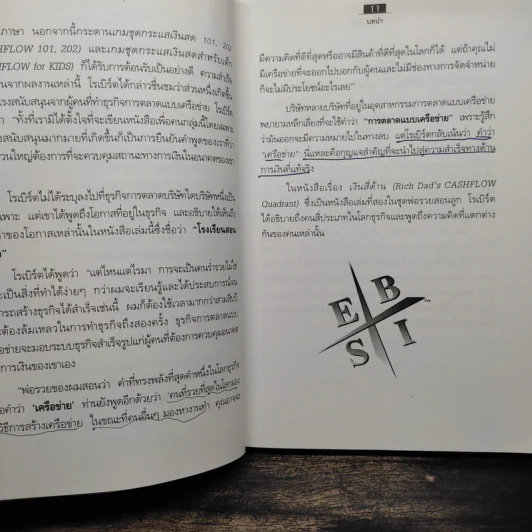 ภาษา นอกจากนี้กระดานเกมชุดกระแสเงินสด 101, 202
HFLOW 101, 202) และเกมชุดกระแสเงินสดสำหรับเด็ก
FLOW for KIDS) ก็ได้รับการต้อนรับเป็นอย่างดี ความสำเร็จ
นจากผลงานเหล่านี้ โรเบิร์ตได้กล่าวชื่นชมว่าส่วนหนึ่งเกิดขึ้น
รงสนับสนุนจากผู้คนที่ทำธุรกิจการตลาดแบบเครือข่าย โรเบิร์ต
า "ทั้งที่เรามิได้ตั้งใจที่จะเขียนหนังสือเพื่อคนกลุ่มนี้โดยเฉพาะ
สนับสนุนมากมายที่เกิดขึ้นก็เป็นการยืนยันคำพูดของเราที่ว่า
วนใหญ่ต้องการที่จะควบคุมสถานะทางการเงินในอนาคตของเขา
โรเบิร์ตไม่ได้ระบุลงไปที่ธุรกิจการตลาดบริษัทใดบริษัทหนึ่งเป็น
พาะ แต่เขาได้พูดถึงโอกาสที่อยู่ในธุรกิจ และอธิบายให้เห็นถึง
าของโอกาสเหล่านั้นในหนังสือเล่มนี้ซึ่งชื่อว่า "โรงเรียนสอน
โรเบิร์ตได้พูดว่า "แต่ไหนแต่ไรมา การจะเป็นคนร่ำรวยไม่ใช่
ะเป็นสิ่งที่ทำได้ง่ายๆ กว่าผมจะเรียนรู้และได้ประสบการณ์จน
ารถสร้างธุรกิจได้สำเร็จเช่นนี้ ผมก็ต้องใช้เวลามากกว่าสามสิบปี
ะต้องล้มเหลวในการทำธุรกิจถึงสองครั้ง ธุรกิจการตลาดแบบ
อข่ายจะมอบระบบธุรกิจสำเร็จรูปแก่ผู้คนที่ต้องการควบคุมอนาคต
การเงินของเขาเอง
"พ่อรวยของผมสอนว่า คำที่ทรงพลังที่สุดคำหนึ่งในโลกธุรกิจ
อคำว่า 'เครือข่าย' ท่านยังพูดอีกด้วยว่า 'คนที่รวยที่สุดในโลกมอง
วิธีการสร้างเครือข่าย ในขณะที่คนอื่นๆ มองหางานทำ' คุณอาจจะ
11
บทนำ
มีความคิดที่ดีที่สุดหรืออาจมีสินค้าที่ดีที่สุดในโลกก็ได้ แต่ถ้าคุณไม่
มีเครือข่ายที่จะออกไปบอกกับผู้คนและไม่มีช่องทางการจัดจำหน่าย
ก็จะไม่มีประโยชน์อะไรเลย"
บริษัทหลายบริษัทที่อยู่ในอุตสาหกรรมการตลาดแบบเครือข่าย
พยายามหลีกเลี่ยงที่จะใช้คำว่า "การตลาดแบบเครือข่าย" เพราะรู้สึก
ว่ามันออกจะมีความหมายไปในทางลบ แต่โรเบิร์ตกลับเน้นว่า คำว่า
"เครือข่าย" นี่แหละคือกุญแจสำคัญที่จะนำไปสู่ความสำเร็จทางด้าน
การเงินที่แท้จริง
ในหนังสือเรื่อง เงินสี่ด้าน (Rich Dad's CASHFLOW
Quadrant) ซึ่งเป็นหนังสือเล่มที่สองในชุดพ่อรวยสอนลูก โรเบิร์ต
ได้อธิบายถึงคนสี่ประเภทในโลกธุรกิจและพูดถึงความคิดที่แตกต่าง
กันของคนเหล่านั้น
E B
S I